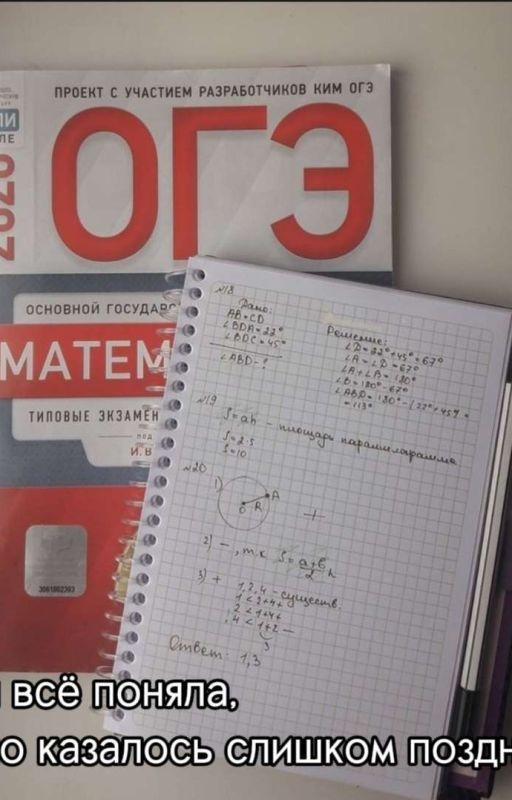 ПРОЕКТ С УЧАСТИЕМ РАЗРАБОТЧИКОВ КИМ ОГЭ
ОГЭ
ОСНОВНОЙ ГОСУДАРС
МАТЕМ
ТИПОВЫЕ ЭКЗАМЕН
ПОД
И. В
3061802393
№18
Дано:
AB=CD
∠BDA=22°
∠BDC=45°
∠ABD-?
Решение:
∠D=22°+45°=67°
∠A=∠D=67°
∠A+∠B=180°
∠B=180°-67°
∠ABD=180°-(22°+45°)=
=113°
№19
S=ah - площадь параллелограмма
S=2·5
S=10
№20
1)
A
O
R
+
2) - , т.к S=a+b/2 h
3) +
1,2,4 - существ.
1<2+4+
2<1+4+
4<1+2-
3
Ответ: 1,3
всё поняла,
о казалось слишком поздн